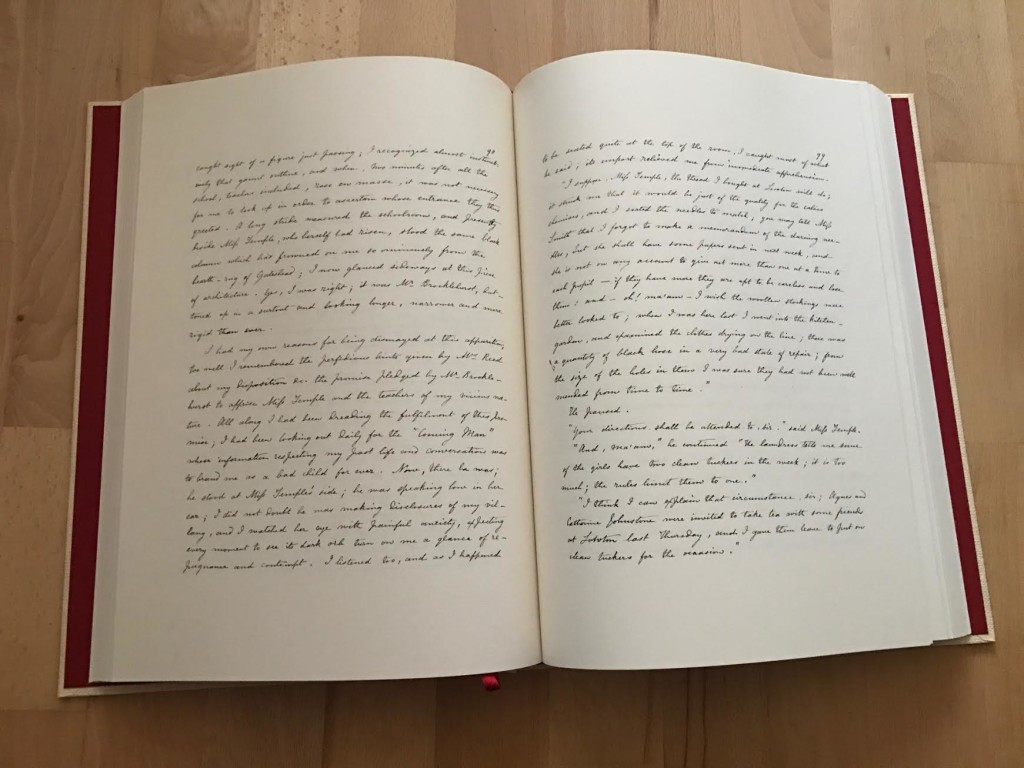 98
caught sight of a figure just passing; I recognized almost instinct-
ively that gaunt outline, and when, two minutes after all the
school, teachers included, rose en masse, it was not necessary
for me to look up in order to ascertain whose entrance they thus
greeted. A long stride measured the schoolroom, and presently
beside Miss Temple, who herself had risen, stood the same black
column which had frowned on me so ominously from the
hearth-rug of Gateshead; I now glanced sideways at this piece
of architecture. Yes, I was right, it was Mr. Brocklehurst, but-
toned up in a surtout and looking longer, narrower and more
rigid than ever.
I had my own reasons for being dismayed at this apparition;
too well I remembered the perfidious hints given by Mrs Reed
about my disposition &c. the promise pledged by Mr. Brockle-
hurst to apprise Miss Temple and the teachers of my vicious na-
ture. All along I had been dreading the fulfilment of this pro-
mise; I had been looking out daily for the "Coming Man"
whose information respecting my past life and conversation was
to brand me as a bad child for ever. Now, there he was;
he stood at Miss Temple's side; he was speaking low in her
ear; I did not doubt he was making disclosures of my vil-
lany, and I watched her eye with painful anxiety, expecting
every moment to see its dark orb turn on me a glance of re-
pugnance and contempt. I listened too, and as I happened
99
to be seated quite at the top of the room, I caught most of what
he said; its import relieved me from immediate apprehension.
"I suppose, Miss Temple, the thread I bought at Lowton will do;
it struck me that it would be just of the quality for the calico
chemises, and I sorted the needles to match, you may tell Miss
Smith that I forgot to make a memorandum of the darning nee-
dles, but she shall have some papers sent in next week, and
she is not on any account to give out more than one at a time to
each pupil — if they have more they are apt to be careless and lose
them: and — oh! ma'am — I wish the woollen stockings were
better looked to; when I was here last I went into the kitchen-
garden, and examined the clothes drying on the line; there was
a quantity of black hose in a very bad state of repair; from
the size of the holes in them I was sure they had not been well
mended from time to time."
He paused.
"Your directions shall be attended to, sir." said Miss Temple.
"And, ma'am," he continued "the laundress tells me some
of the girls have two clean tuckers in the week; it is too
much; the rules limit them to one."
"I think I can explain that circumstance, sir; Agnes and
Catherine Johnstone were invited to take tea with some friends
at Lowton last Thursday, and I gave them leave to put on
clean tuckers for the occasion."